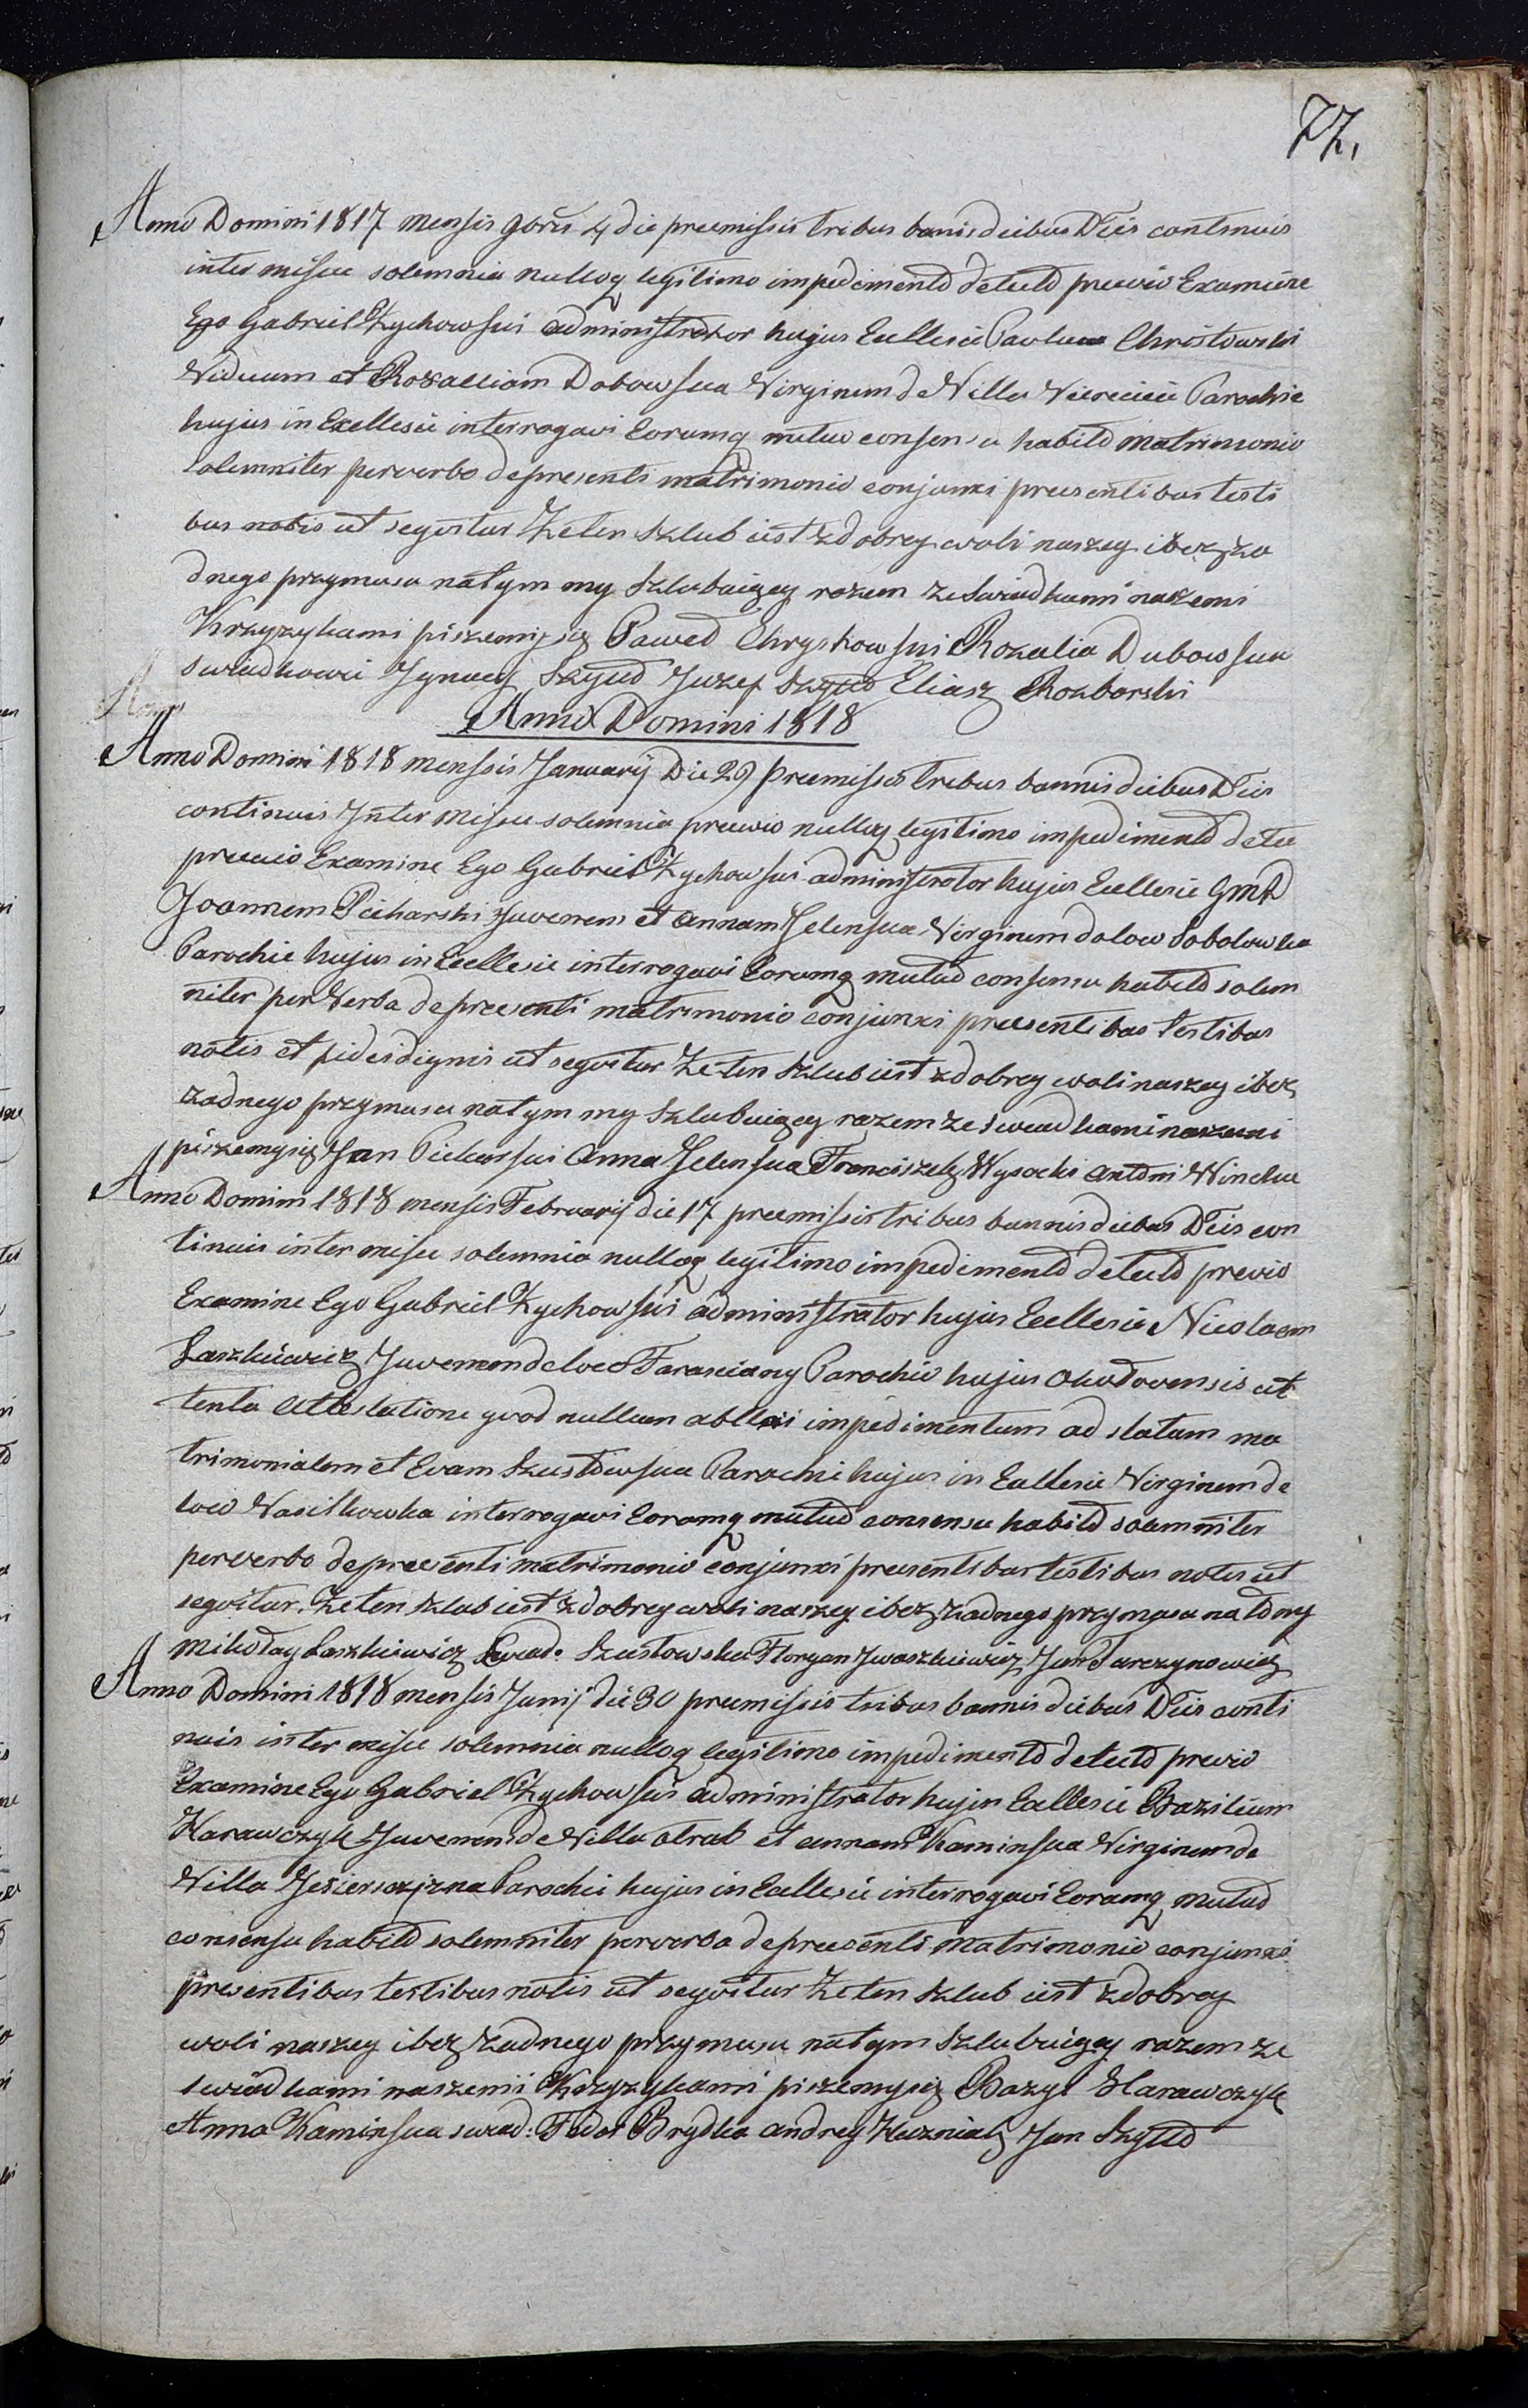 77,
Anno Domini 1817 mensis 9bris 4 die premissis tribus banis diebus DTis continuis
inter missae solemnia nulloq legitimo impedimento detecto previo Examine
Ego Gabriel Zychowski administrator hujus Ecclesie Paulum Christowski
Viduum et Rosalliam Dobowska Virginem de Villa Parochie
hujus in Ecclesie interrogavi Eorumq mutuo consensu habito matrimonio
solemniter per verba de presenti matrimonio conjunxi presentibus testi
bus notis ut seqvitur Ze ten szlub iest zdobrey woli naszey ibez za
dnego przymusu natym my szlubuiącey razem ze swiadkami naszemi
Krzyzykami piszemy się Paweł Chrystowski Rozalia Dubowska
swiadkowie Jgnacy Szyd Juzef Szyd Eliasz Rozborski
Anno Domini 1818
Anno Domini 1818 mensis Januarij Die 29 Premissis tribus bannis diebus DTis
continuis Jnter missae solemnia previo nulloq legitimo impedimento dete
previo Examine Ego Gabriel Zychowski administrator hujus Ecclesie GmD
Joannem Piekarski Juvenem et annam Jelenska Virginem de loco Sobolowka
Parochie hujus in Ecclesie interrogavi Eorumq mutuo consensu habito solem
niter per Verba de presenti matrimonio conjunxi presentibus testibus
notis et fide dignis ut seqvitur Ze ten szlub iest zdobrey woli naszey ibez
zadnego przymusu natym my szlubuiącey razem ze swiadkami naszemi
piszemy się Jan Piekarski Anna Jelenska Franciszek Wysocki antoni
Anno Domini 1818 mensis Februarij die 17 premissis tribus bannis diebus DTis con
tinuis inter missae solemnia nulloq legitimo impedimento detecto previo
Examine Ego Gabriel Zychowski administrator hujus Ecclesie Nicolaem
Laszkiewicz Juvenem de loco Tarasciany Parochie hujus at
tenta attestatione qvod nullum impedimentum ad statum ma
trimonialem et Evam Szustowska Parochie hujus in Ecclesie Virginem de
loco Wasilkowka interrogavi Eorumq mutuo consensu habito solemniter
per verba de presenti matrimonio conjunxi presentibus testibus notis ut
seqvitur. Ze ten szlub iest zdobrey woli naszey ibez zadnego przymusu na to my
Mikołay Laszkiewicz Szustowska Floryan Jwaszkiewicz Jan Tarczynowicz
Anno Domini 1818 mensis Junij die 30 premissis tribus bannis diebus DTis conti
nuis inter missae solemnia nulloq legitimo impedimento detecto previo
Examine Ego Gabriel Zychowski administrator hujus Ecclesie Bazilium
Harawczyk Juvenem de Villa Otrab et annam Kaminska Virginem de
Villa Parochie hujus in Ecclesie interrogavi Eorumq mutuo
consensu habito solemniter per verba de presenti matrimonio conjunxi
presentibus testibus notis ut seqvitur Ze ten szlub iest zdobrey
woli naszey ibez zadnego przymusu natym szlubuiącey razem ze
swiadkami naszemi Krzyzykami piszemy się Bazyl Harawczyk
Anna Kaminska swiad: Fedor Brydka andrey Kuzniak Jan Szyd